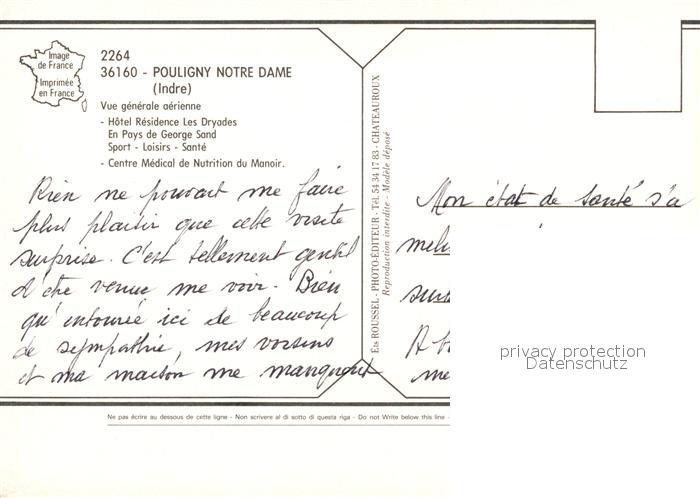 Image
de France
Imprimée
en France
2264
36160 - POULIGNY NOTRE DAME
(Indre)
Vue générale aérienne
- Hôtel Résidence Les Dryades
En Pays de George Sand
Sport - Loisirs - Santé
- Centre Médical de Nutrition du Manoir.
Rien ne pouvait me faire
plus plaisir que cette visite
surprise. C'est tellement gentil
d'être venue me voir. Bien
qu'entourée ici de beaucoup
de sympathie, mes voisins
et ma maison me manquent
Ets ROUSSEL - PHOTO-EDITEUR - Tél. 54 34 17 83 - CHATEAUROUX
Reproduction interdite - Modèle déposé
Mon état de santé s'a
A b
me
privacy protection
Datenschutz
Ne pas écrire au dessous de cette ligne - Non scrivere al di sotto di questa riga - Do not Write below this line -